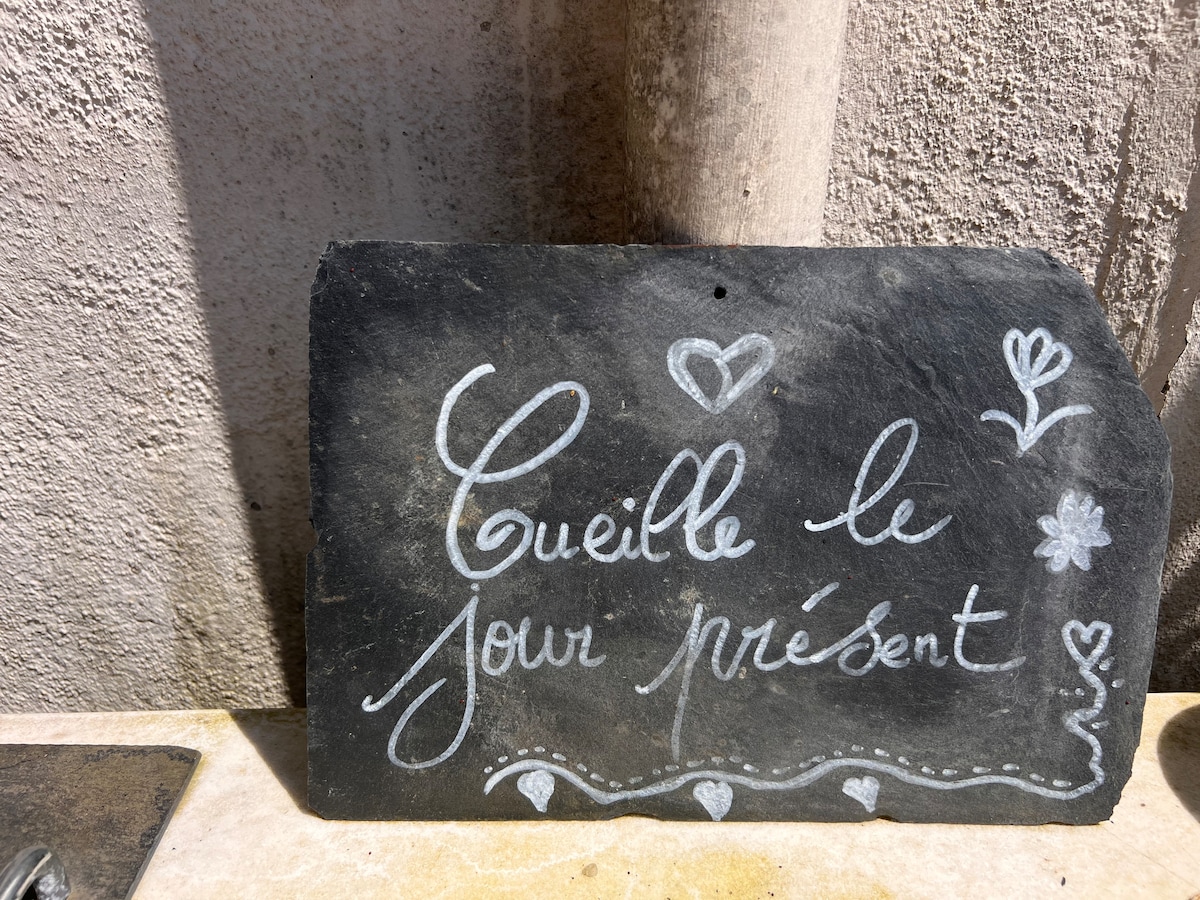 Cueille le
jour présent